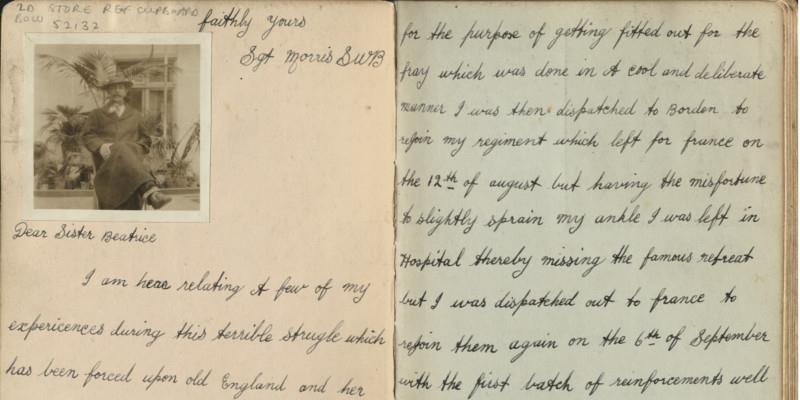 2D STORE REF CUPBOARD
BOW 52132
faithly yours
Sgt Morris SWB
Dear Sister Beatrice
I am hear relating A few of my
expericences during this terrible strugle which
has been forced upon old England and her
for the purpose of getting fitted out for the
fray which was done in A cool and deliberate
manner I was then dispatched to Bordon to
rejoin my regiment which left for france on
the 12th of august but having the misfortune
to slightly sprain my ankle I was left in
Hospital thereby missing the famous retreat
but I was dispatched out to france to
rejoin them again on the 6th of September
with the first batch of reinforcements well